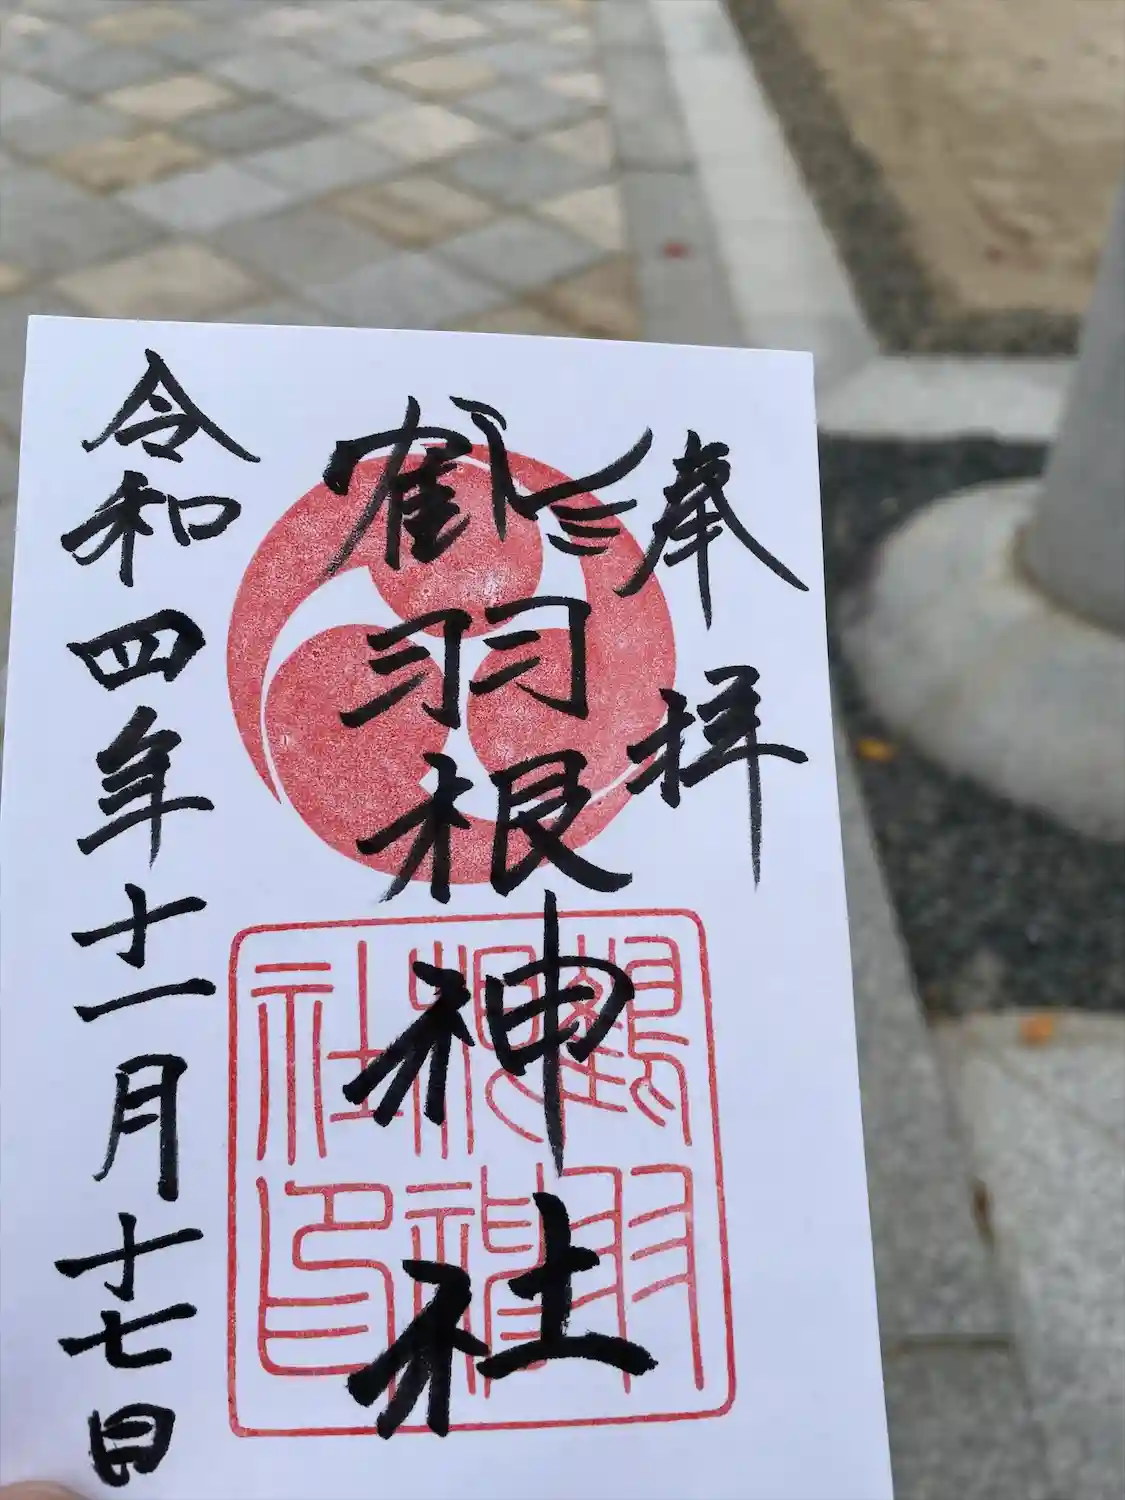 奉拝
鶴羽根神社
令和四年十一月十七日
鶴羽
根神
社印